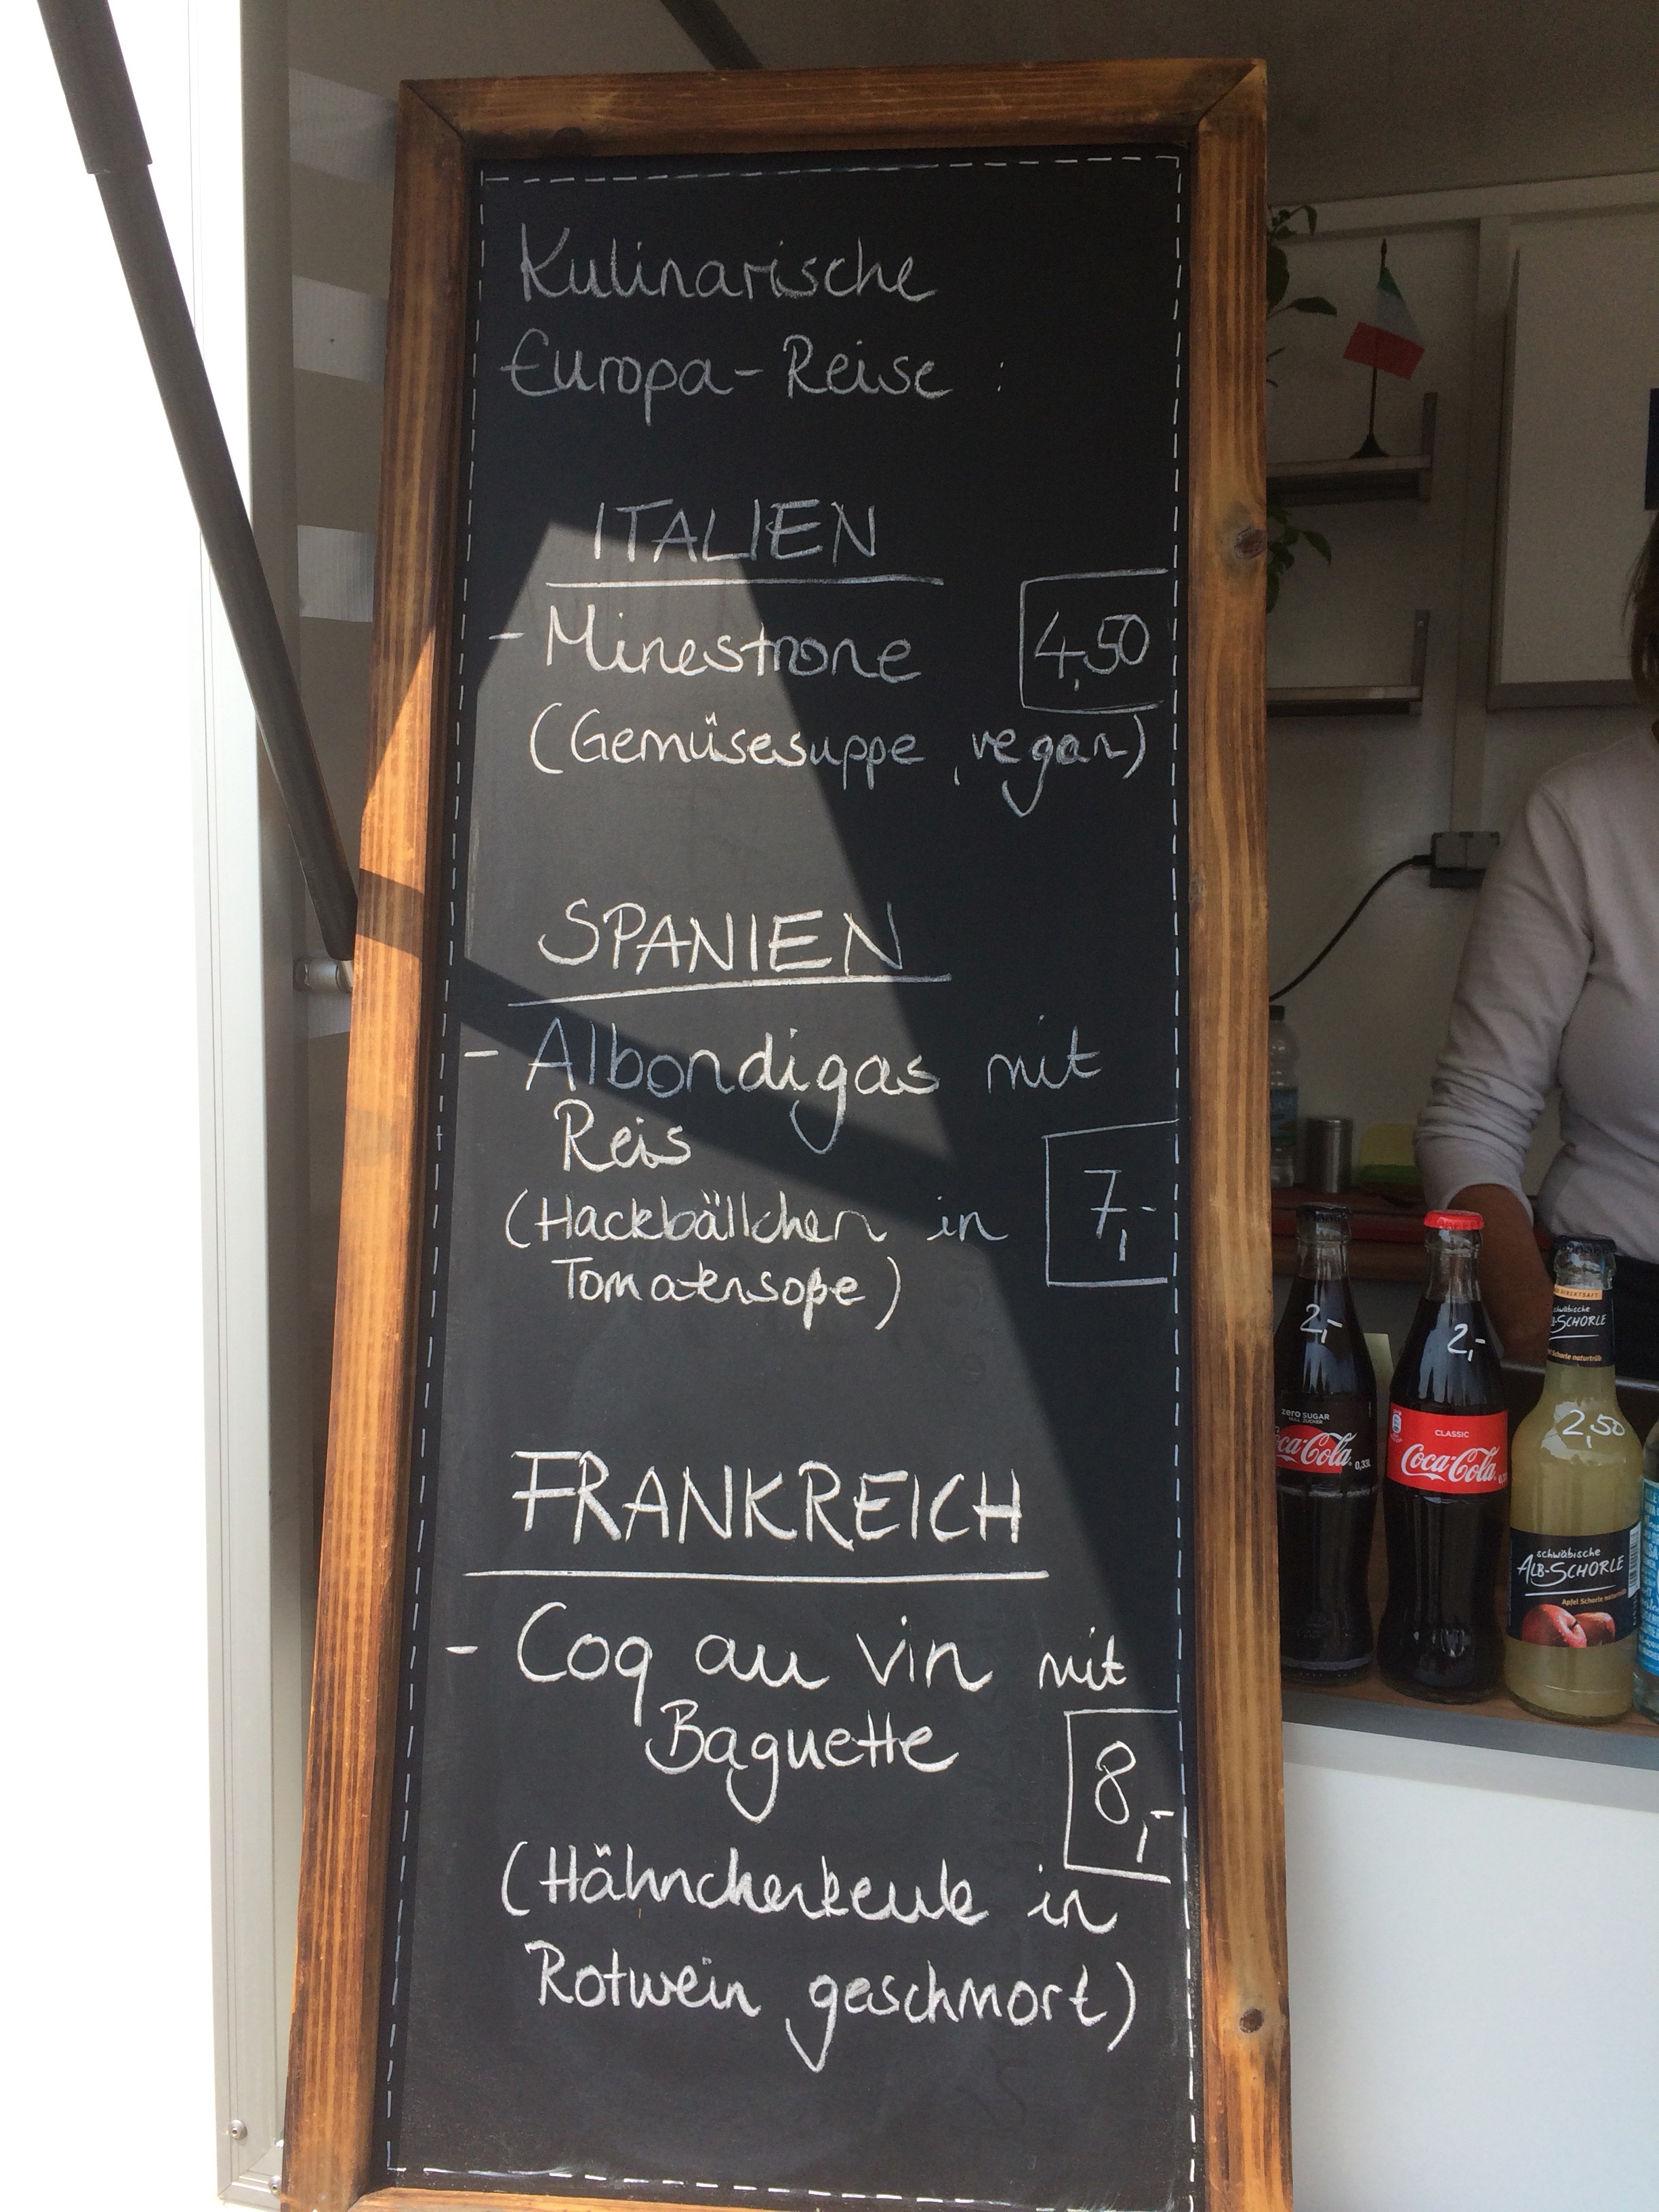 Kulinarische
Europa-Reise :
ITALIEN
- Minestrone 4,50
(Gemüsesuppe, vegan)
SPANIEN
- Albondigas mit
Reis
(Hackbällchen in 7,-
Tomatensoße)
FRANKREICH
- Coq au vin mit
Baguette 8,-
(Hähnchenkeule in
Rotwein geschmort)
2,-
zero SUGAR
Coca-Cola 0,33l
2,-
CLASSIC
Coca-Cola
DIREKTSAFT
schwäbische
ALB-SCHORLE
Schorle naturtrüb
2,50
schwäbische
ALB-SCHORLE
Apfel Schorle naturtrüb